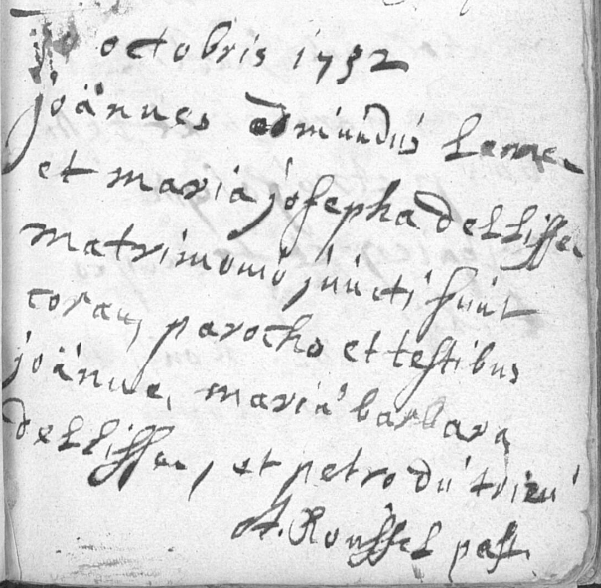 octobris 1732
joännes edmundus Lenne
et maria josepha delliffe
matrimonio juncti sunt
coram parocho et testibus
joänne, maria barbara
delliffe, et petro du trieu
A. Rouffel past.